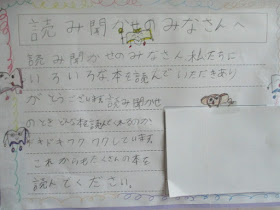 読み聞かせのみなさんへ
読み聞かせのみなさん私たちに、
いろいろな本を読んでいただきあり
がとうございます読み聞かせ
のときどんな本を読んでくれるのか
ドキドキワクワクしています。
これからもたくさんの本を
読んでください。